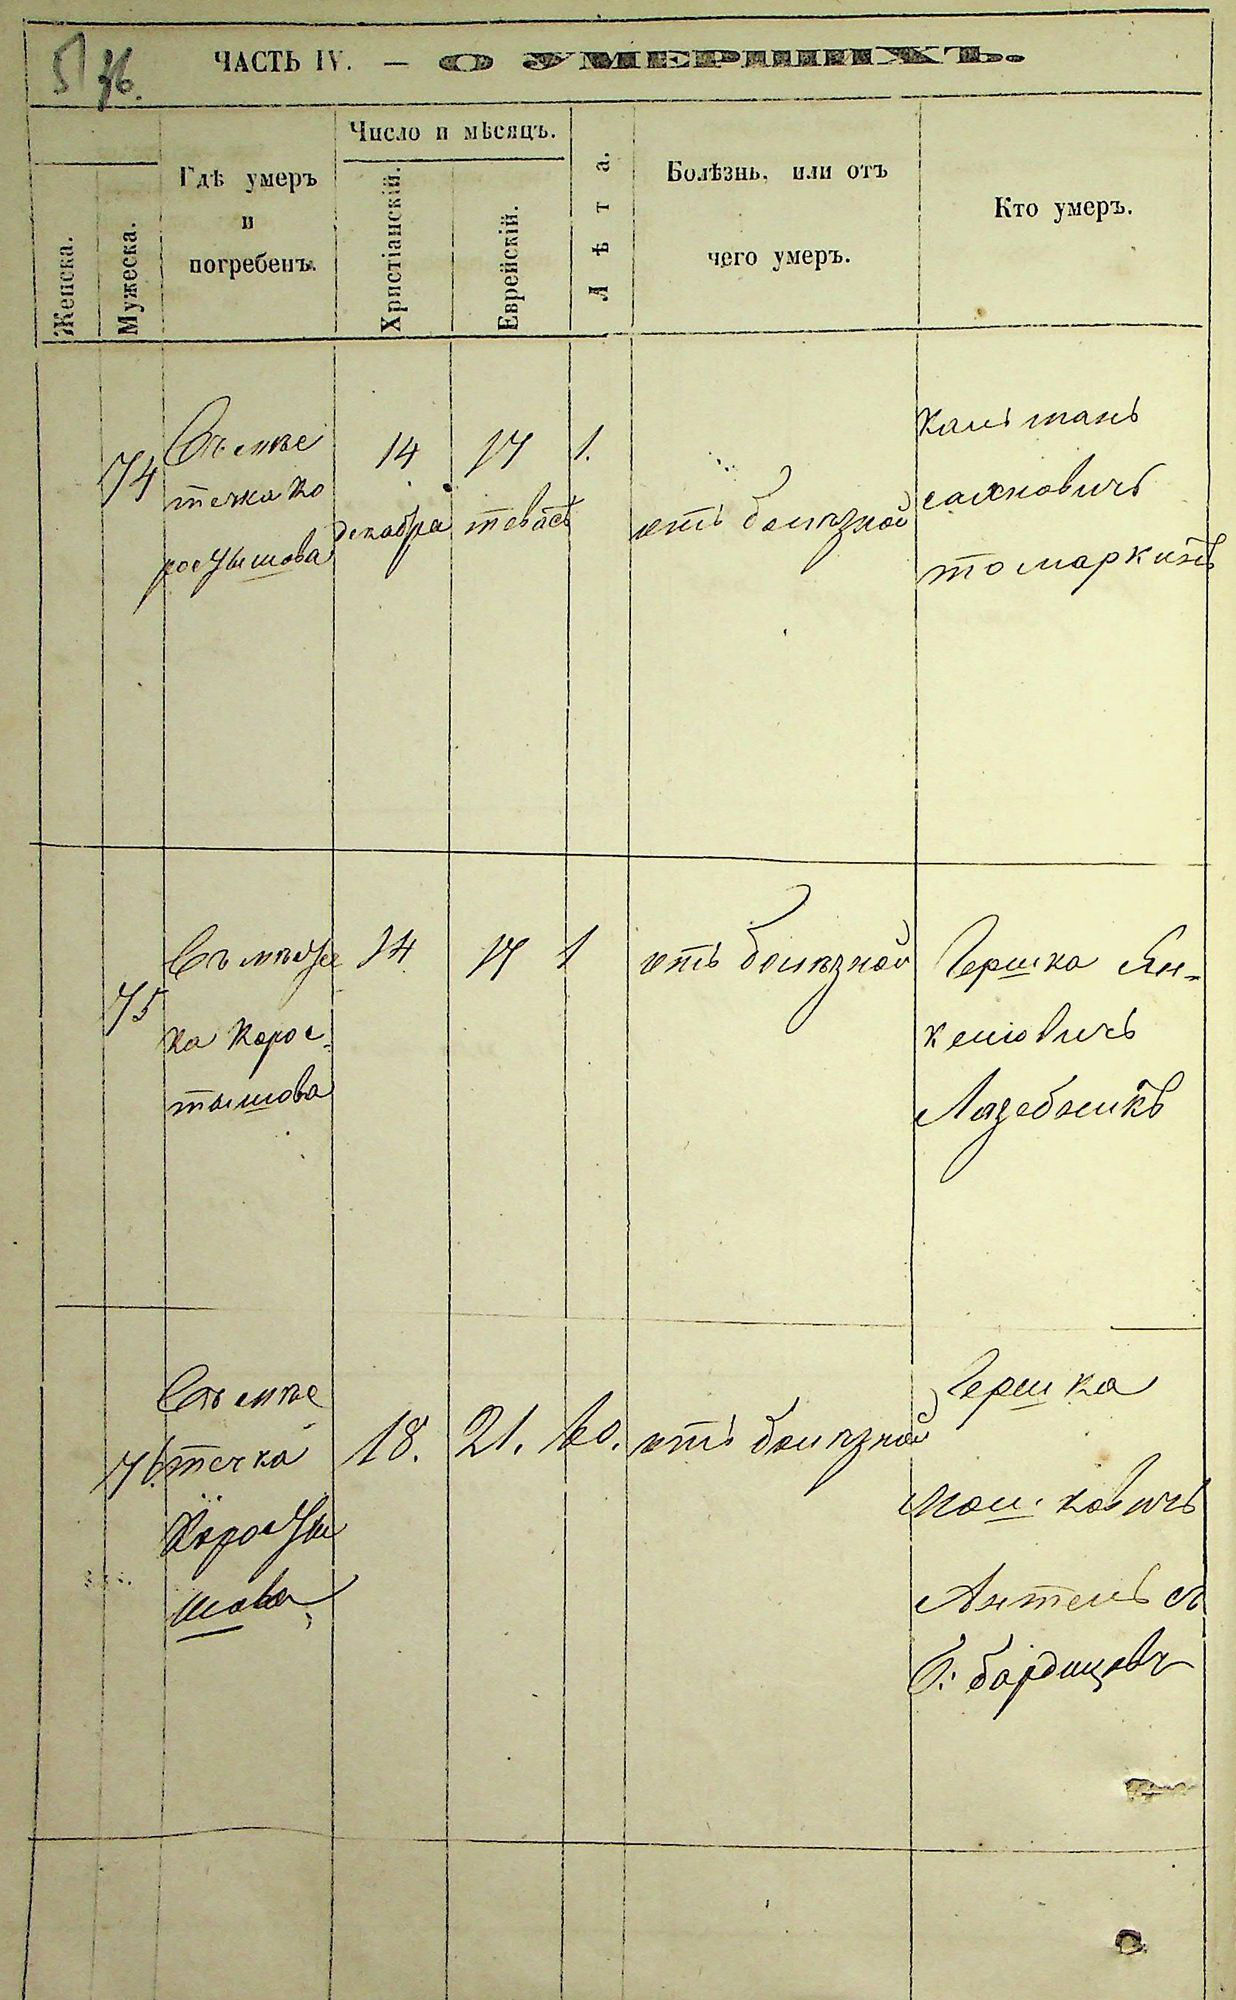 ЧАСТЬ IV. — О УМЕРШИХЪ.
Женска.
Мужеска.
Гдѣ умеръ
и
погребенъ.
Число и мѣсяцъ.
Христіанскій.
Еврейскій.
Лѣта.
Болѣзнь, или отъ
чего умеръ.
Кто умеръ.
74
Въ мѣс
течка Ко
ростышова
14
декабра
17
теватъ
1.
отъ болѣзной
Кальманъ
сахновичъ
томаркинъ
75
Въ мѣстеч
ка Корос-
тышова
14
17
1
отъ болѣзной
Гершка Ян-
келовичъ
Лазебникъ
76.
Въ мѣс
течка
Коросты
шова
18.
21.
60.
отъ болѣзной
Гершка
Мошковичъ